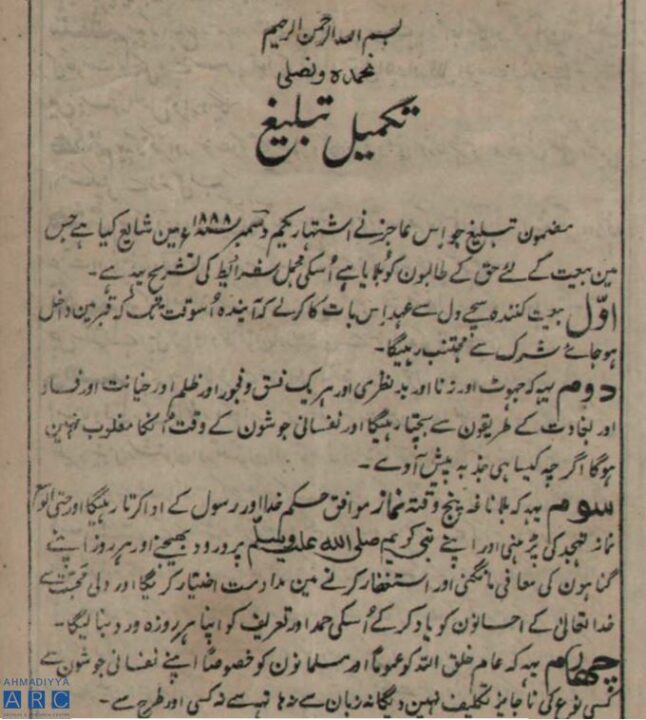 بسم اللہ الرحمن الرحیم
نحمدہ و نصلی
تکمیل تبلیغ
مضمون تبلیغ جو اس عاجز نے اشتہار یکم دسمبر ۱۸۸۸ء مین شایع کیا ہے جس
مین بیعت کے لئے حق کے طالبون کو بلایا ہے اُسکی مجمل شرائط کی تشریح یہ ہے۔
اوّل بیعت کنندہ سچے دل سے عہد اس بات کا کرلے کہ آیندہ اُسوقت تک کہ قبر مین داخل
ہو جائے شرک سے مجتنب رہیگا۔
دوم یہہ کہ جہوٹ اور زنا اور بدنظری اور ہریک فسق و فجور اور ظلم اور خیانت اور فساد
اور بغاوت کے طریقون سے بچتا رہیگا اور نفسانی جوشون کے وقت اُنکا مغلوب نہین
ہوگا اگرچہ کیسا ہی جذبہ پیش آوے۔
سوم یہہ کہ بلاناغہ پنج وقتہ نماز موافق حکم خدا اور رسول کے ادا کرتا رہیگا اور حتی الوسع
نماز تہجد کی پڑہنی اور اپنے نبی کریم صلی اللہ علیہ وسلم پر درود بھیجنے اور ہر روز اپنے
گناہون کی معافی مانگنی اور استغفار کرنے مین مداومت اختیار کریگا اور دلی محبت سے
خدا تعالیٰ کے احسانون کو یاد کرکے اُسکی حمد اور تعریف کو اپنا ہر روزہ ورد بنا لیگا۔
چھارم یہہ کہ عام خلق اللہ کو عموماً اور مسلمانون کو خصوصاً اپنے نفسانی جوشون سے
کسی نوع کی ناجایز تکلیف نہین دیگا نہ زبان سے نہ ہاتہہ سے نہ کسی اور طرح سے۔
AHMADIYYA
ARC